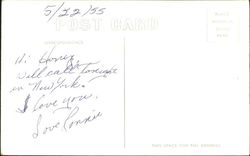 5/22/55
POST CARD
CORRESPONDENCE
PLACE
STAMP
HERE
Hi Honey
Will call tonight
in New York.
I love you.
Love Connie
THIS SPACE FOR THE ADDRESS